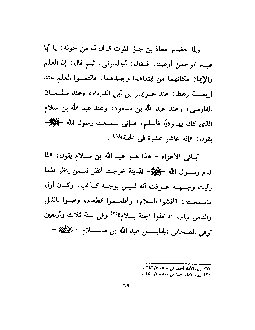 ولما حضر معاذ بن جبل الموت قال له من حوله: يا أبا
عبد الرحمن أوصنا، فقال: أجلسوني، ثم قال: إن العلم
والإيمان مكانهما من ابتغاهما وجدهما، فالتمسوا العلم عند
أربعة رهط: عند عويمر بن أبي الدرداء، وعند سلمان
الفارسي، وعند عبد الله بن مسعود، وعند عبد الله بن سلام
الذي كان يهوديًا فأسلم، فإني سمعت رسول الله ﷺ
يقول: إنه عاشر عشرة في الجنة
هذا هو عبد الله بن سلام يقول: لما
قدم رسول الله ﷺ المدينة خرجت أنظر فيمن ينظر فلما
رأيت وجهه عرفت أنه ليس بوجه كذاب، وكان أول
ما سمعت: أفشوا السلام، وأطعموا الطعام، وصلوا بالليل
والناس نيام، تدخلوا الجنة بسلام وفي سنة ثلاث وأربعين
توفي الصحابي الجليل عبد الله بن سلام